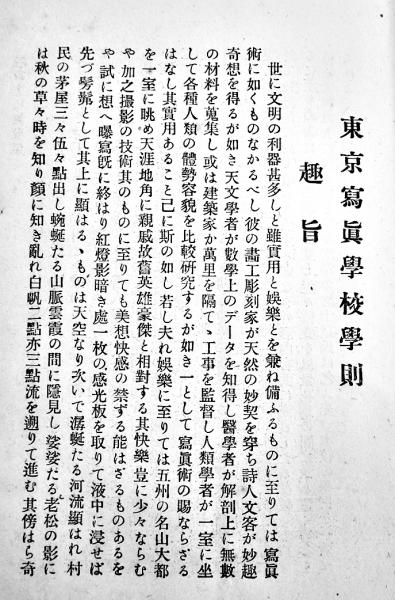 東京寫眞學校學則
趣旨
世に文明の利器甚多しと雖實用と娯樂とを兼ね備ふるものに至りては寫眞
術に如くものなかるべし彼の畵工彫刻家が天然の妙契を穿ち詩人文客が妙趣
奇想を得るが如き天文學者が數學上のデータを知得し醫學者が解剖上に無數
の材料を蒐集し或は建築家か萬里を隔てゝ工事を監督し人類學者が一室に坐
して各種人類の體勢容貌を比較研究するが如き一として寫眞術の賜ならざる
はなし其實用あること已に斯の如し若し夫れ娯樂に至りては五州の名山大都
を一室に眺め天涯地角に親戚故舊英雄豪傑と相對する其快樂豈に少々ならむ
や加之撮影の技術其のものに至りても美想快感の禁ずる能はざるものあるを
や試に想へ曝寫旣に終はり紅燈影暗き處一枚の感光板を取りて液中に浸せば
先づ髣髴として其上に顯はるゝものは天空なり次いで潺蜒たる河流顯はれ村
民の茅屋三々伍々點出し蜿蜒たる山脈雲霞の間に隱見し娑娑たる老松の影に
は秋の草々時を知り顔に知き亂れ白帆二點亦三點流を遡りて進む其傍はら奇